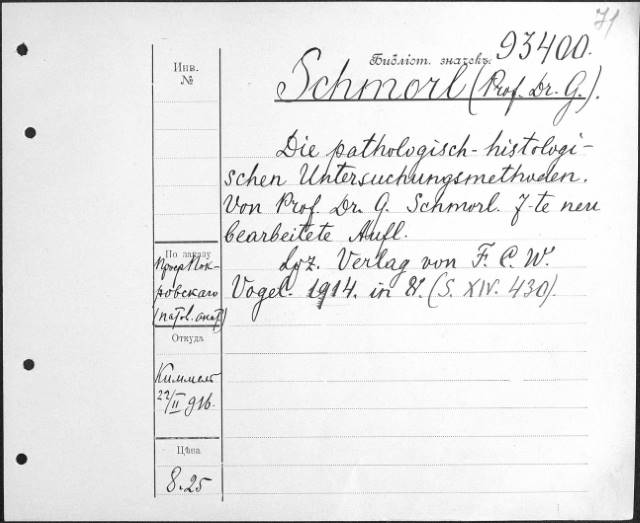 71
Библіот. значекъ. 93400.
Schmorl (Prof. Dr. G.).
Die pathologisch-histologi-
schen Untersuchungsmethoden.
Von Prof. Dr. G. Schmorl. 7-te neu
bearbeitete Aufl.
Lpz. Verlag von F. C. W.
Vogel. 1914. in 8. (S. XIV. 430).
Инв.
№
По заказу
Проф Пок-
ровскаго
(патол. анат.)
Откуда
Киммель
22/II 916.
Цѣна
8.25